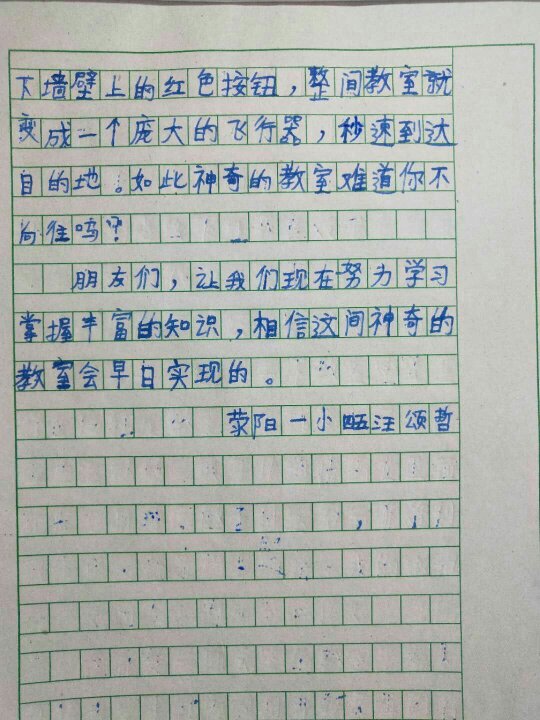 下墙壁上的红色按钮，整间教室就
变成一个庞大的飞行器，秒速到达
目的地。如此神奇的教室难道你不
向往吗？
朋友们，让我们现在努力学习
掌握丰富的知识，相信这间神奇的
教室会早日实现的。
荥阳一小 四五汪颂哲